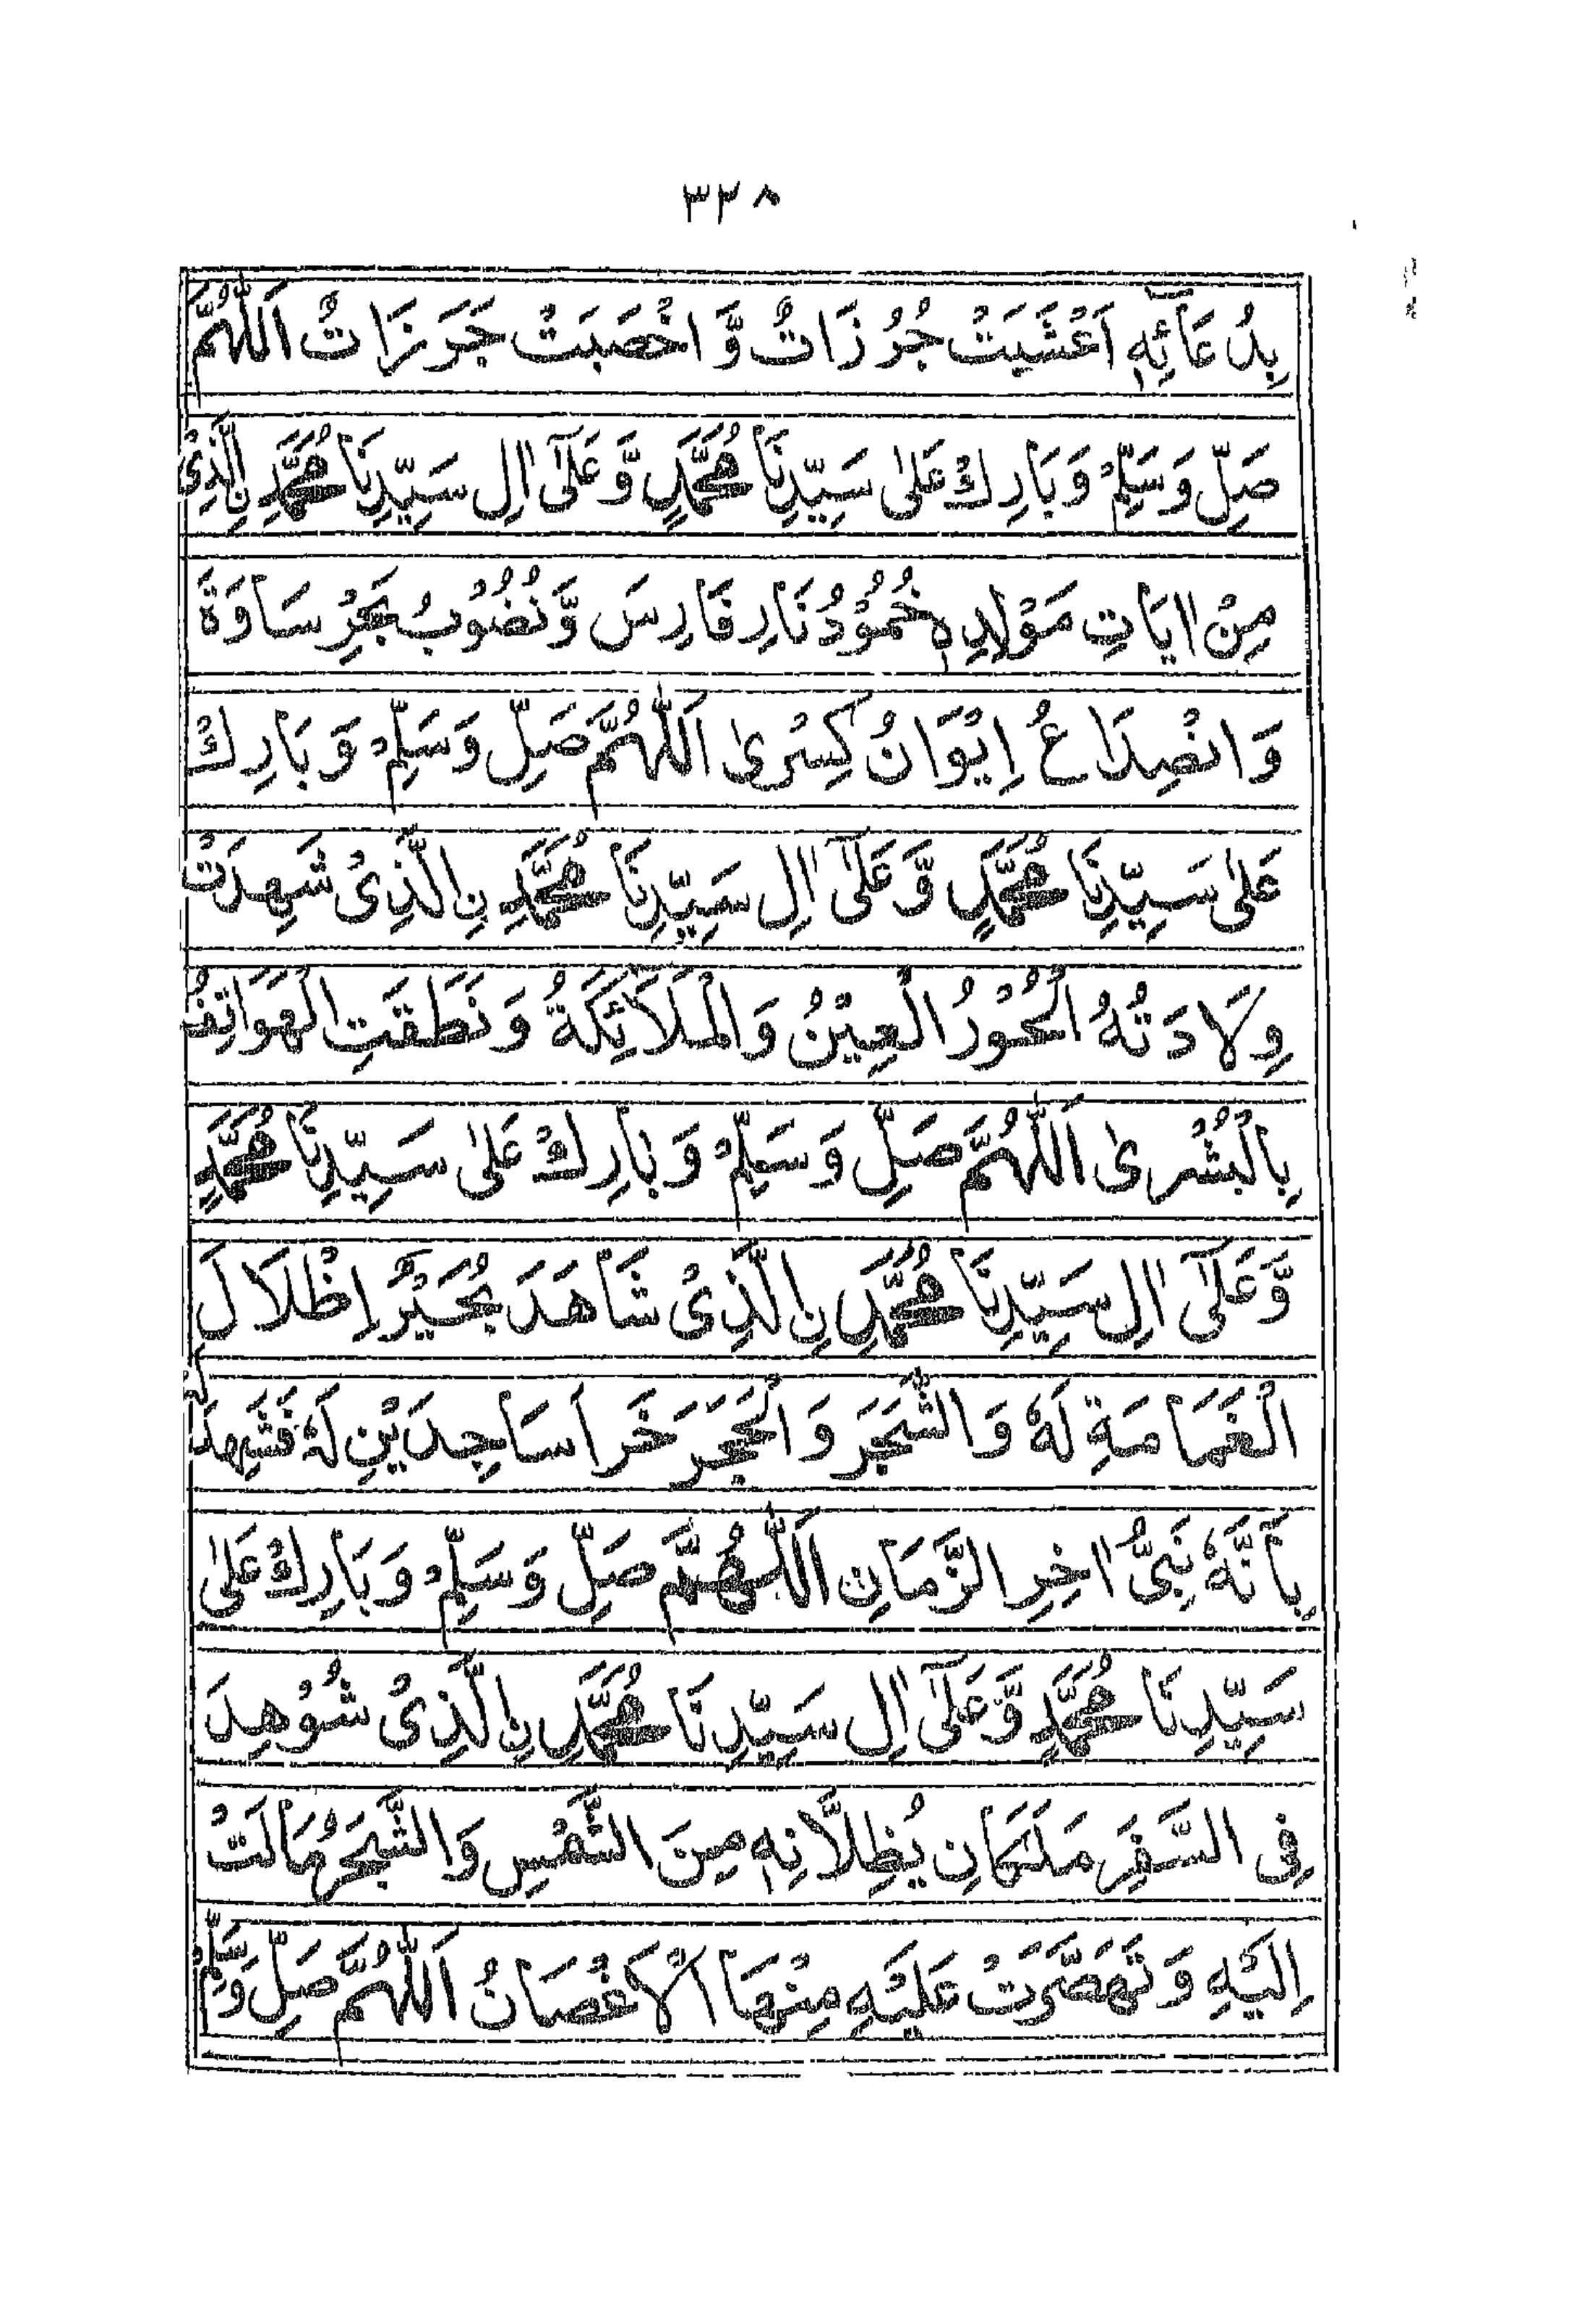 ٣٣٨
بِدُعَآئِهٖ اَعْشَيَتْ جُرُزَاتٌ وَّ اخْصَبَتْ جَرَزَاتٌ اَللّٰهُمَّ
صَلِّ وَسَلِّمْ وَبَارِكْ عَلٰى سَيِّدِنَا مُحَمَّدٍ وَّعَلٰٓى اٰلِ سَيِّدِنَا مُحَمَّدِ نِ الَّذِىْ
مِنْ اٰيَاتِ مَوْلِدِهٖ خُمُوْدُ نَارِ فَارِسَ وَّنُضُوْبُ بَحْرِ سَاوَةَ
وَ انْصِدَاعُ اِيْوَانُ كِسْرٰى اَللّٰهُمَّ صَلِّ وَسَلِّمْ وَ بَارِكْ
عَلٰى سَيِّدِنَا مُحَمَّدٍ وَّ عَلٰٓى اٰلِ سَيِّدِنَا مُحَمَّدِ نِ الَّذِىْ شَهِدَتْ
وِلَادَتُهُ الْحُوْرُ الْعِيْنُ وَالْمَلَآئِكَةُ وَ نَطَقَتِ الْهَوَاتِفُ
بِالْبُشْرٰى اَللّٰهُمَّ صَلِّ وَ سَلِّمْ وَ بَارِكْ عَلٰى سَيِّدِنَا مُحَمَّدٍ
وَّعَلٰٓى اٰلِ سَيِّدِنَا مُحَمَّدِ نِ الَّذِىْ شَاهَدَ بُحَيْرُ اِظْلَالَ
الْغَمَامَةِ لَهٗ وَ الشَّجَرَ وَ الْحَجَرَ خَرَاسَاجِدَيْنِ لَهٗ فَشَهِدَ لَهٗ
بِأَنَّهٗ نَبِىُّ اٰخِرِ الزَّمَانِ اَللّٰهُمَّ صَلِّ وَ سَلِّمْ وَ بَارِكْ عَلٰى
سَيِّدِنَا مُحَمَّدٍ وَّعَلٰٓى اٰلِ سَيِّدِنَا مُحَمَّدِ نِ الَّذِىْ شُوْهِدَ
فِى السَّفَرِ مَلَكَانِ يُظِلَّانِهٖ مِنَ الشَّمْسِ وَالشَّجَرُ مَالَتْ
اِلَيْهِ وَ تَهَصَّرَتْ عَلَيْهِ مِنْهَا الْاَغْصَانُ اَللّٰهُمَّ صَلِّ وَسَلِّمْ